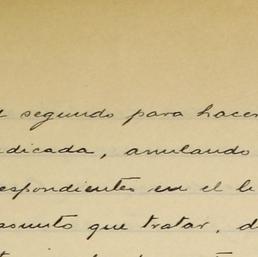 segundo para hacer
dicada, anulando
espondientes en el li
asunto que tratar, d